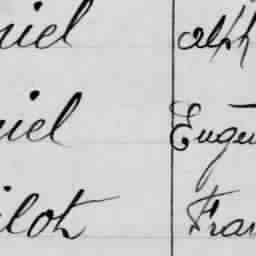 niel Alph
niel Euge
ilot Fran